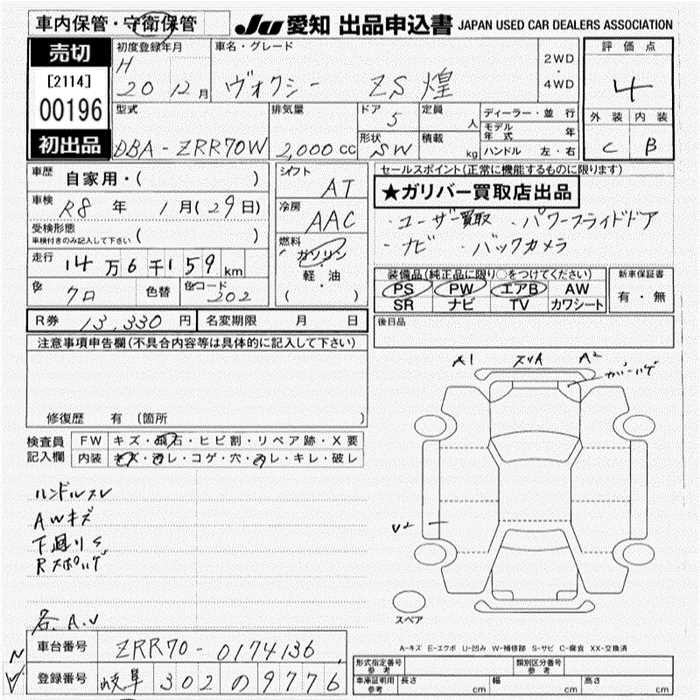 車内保管・守衛保管
JU 愛知 出品申込書 JAPAN USED CAR DEALERS ASSOCIATION
売切
[2114]
00196
初出品
初度登録年月
H 20 12月
車名・グレード
ヴォクシー ZS 煌
2WD
・
4WD
評価点
4
外装 内装
C B
型式
DBA-ZRR70W
排気量
2,000cc
ドア 5
形状 SW
定員 人
積載 kg
ディーラー・並行
モデル年式 年
ハンドル 左・右
車歴 自家用・( )
車検 R8年 1月(29日)
受検形態
車検付きのみ記入して下さい ( )
走行 14万6千159km
色 クロ 色替 色コード 202
シフト AT
冷房 AAC
燃料
ガソリン
軽・油
( )
セールスポイント(正常に機能するものに限ります)
★ガリバー買取店出品
・ユーザー買取 ・パワースライドドア
・ナビ ・バックカメラ
装備品(純正品に限り○をつけてください)
PS PW エアB AW
SR ナビ TV カワシート
新車保証書
有・無
R券 13,330円 名変期限 月 日
後日品
注意事項申告欄(不具合内容等は具体的に記入して下さい)
修復歴 有 (箇所 )
検査員記入欄
FW キズ・飛石・ヒビ割・リペア跡・X要
内装 キズ・汚レ・コゲ・穴・スレ・キレ・破レ
ハンドルスレ
AWキズ
下廻りS
Rスポハゲ
各A.U
A1 スリA A2
カバーハゲ
U2
スペア
A-キズ E-エクボ U-凹み W-補修跡 S-サビ C-腐食 XX-交換済
車台番号 ZRR70-0174136
登録番号 岐阜 302 の 9776
型式指定番号 参考
類別区分番号 参考
車庫証明用 参考 長さ cm 幅 cm 高さ cm